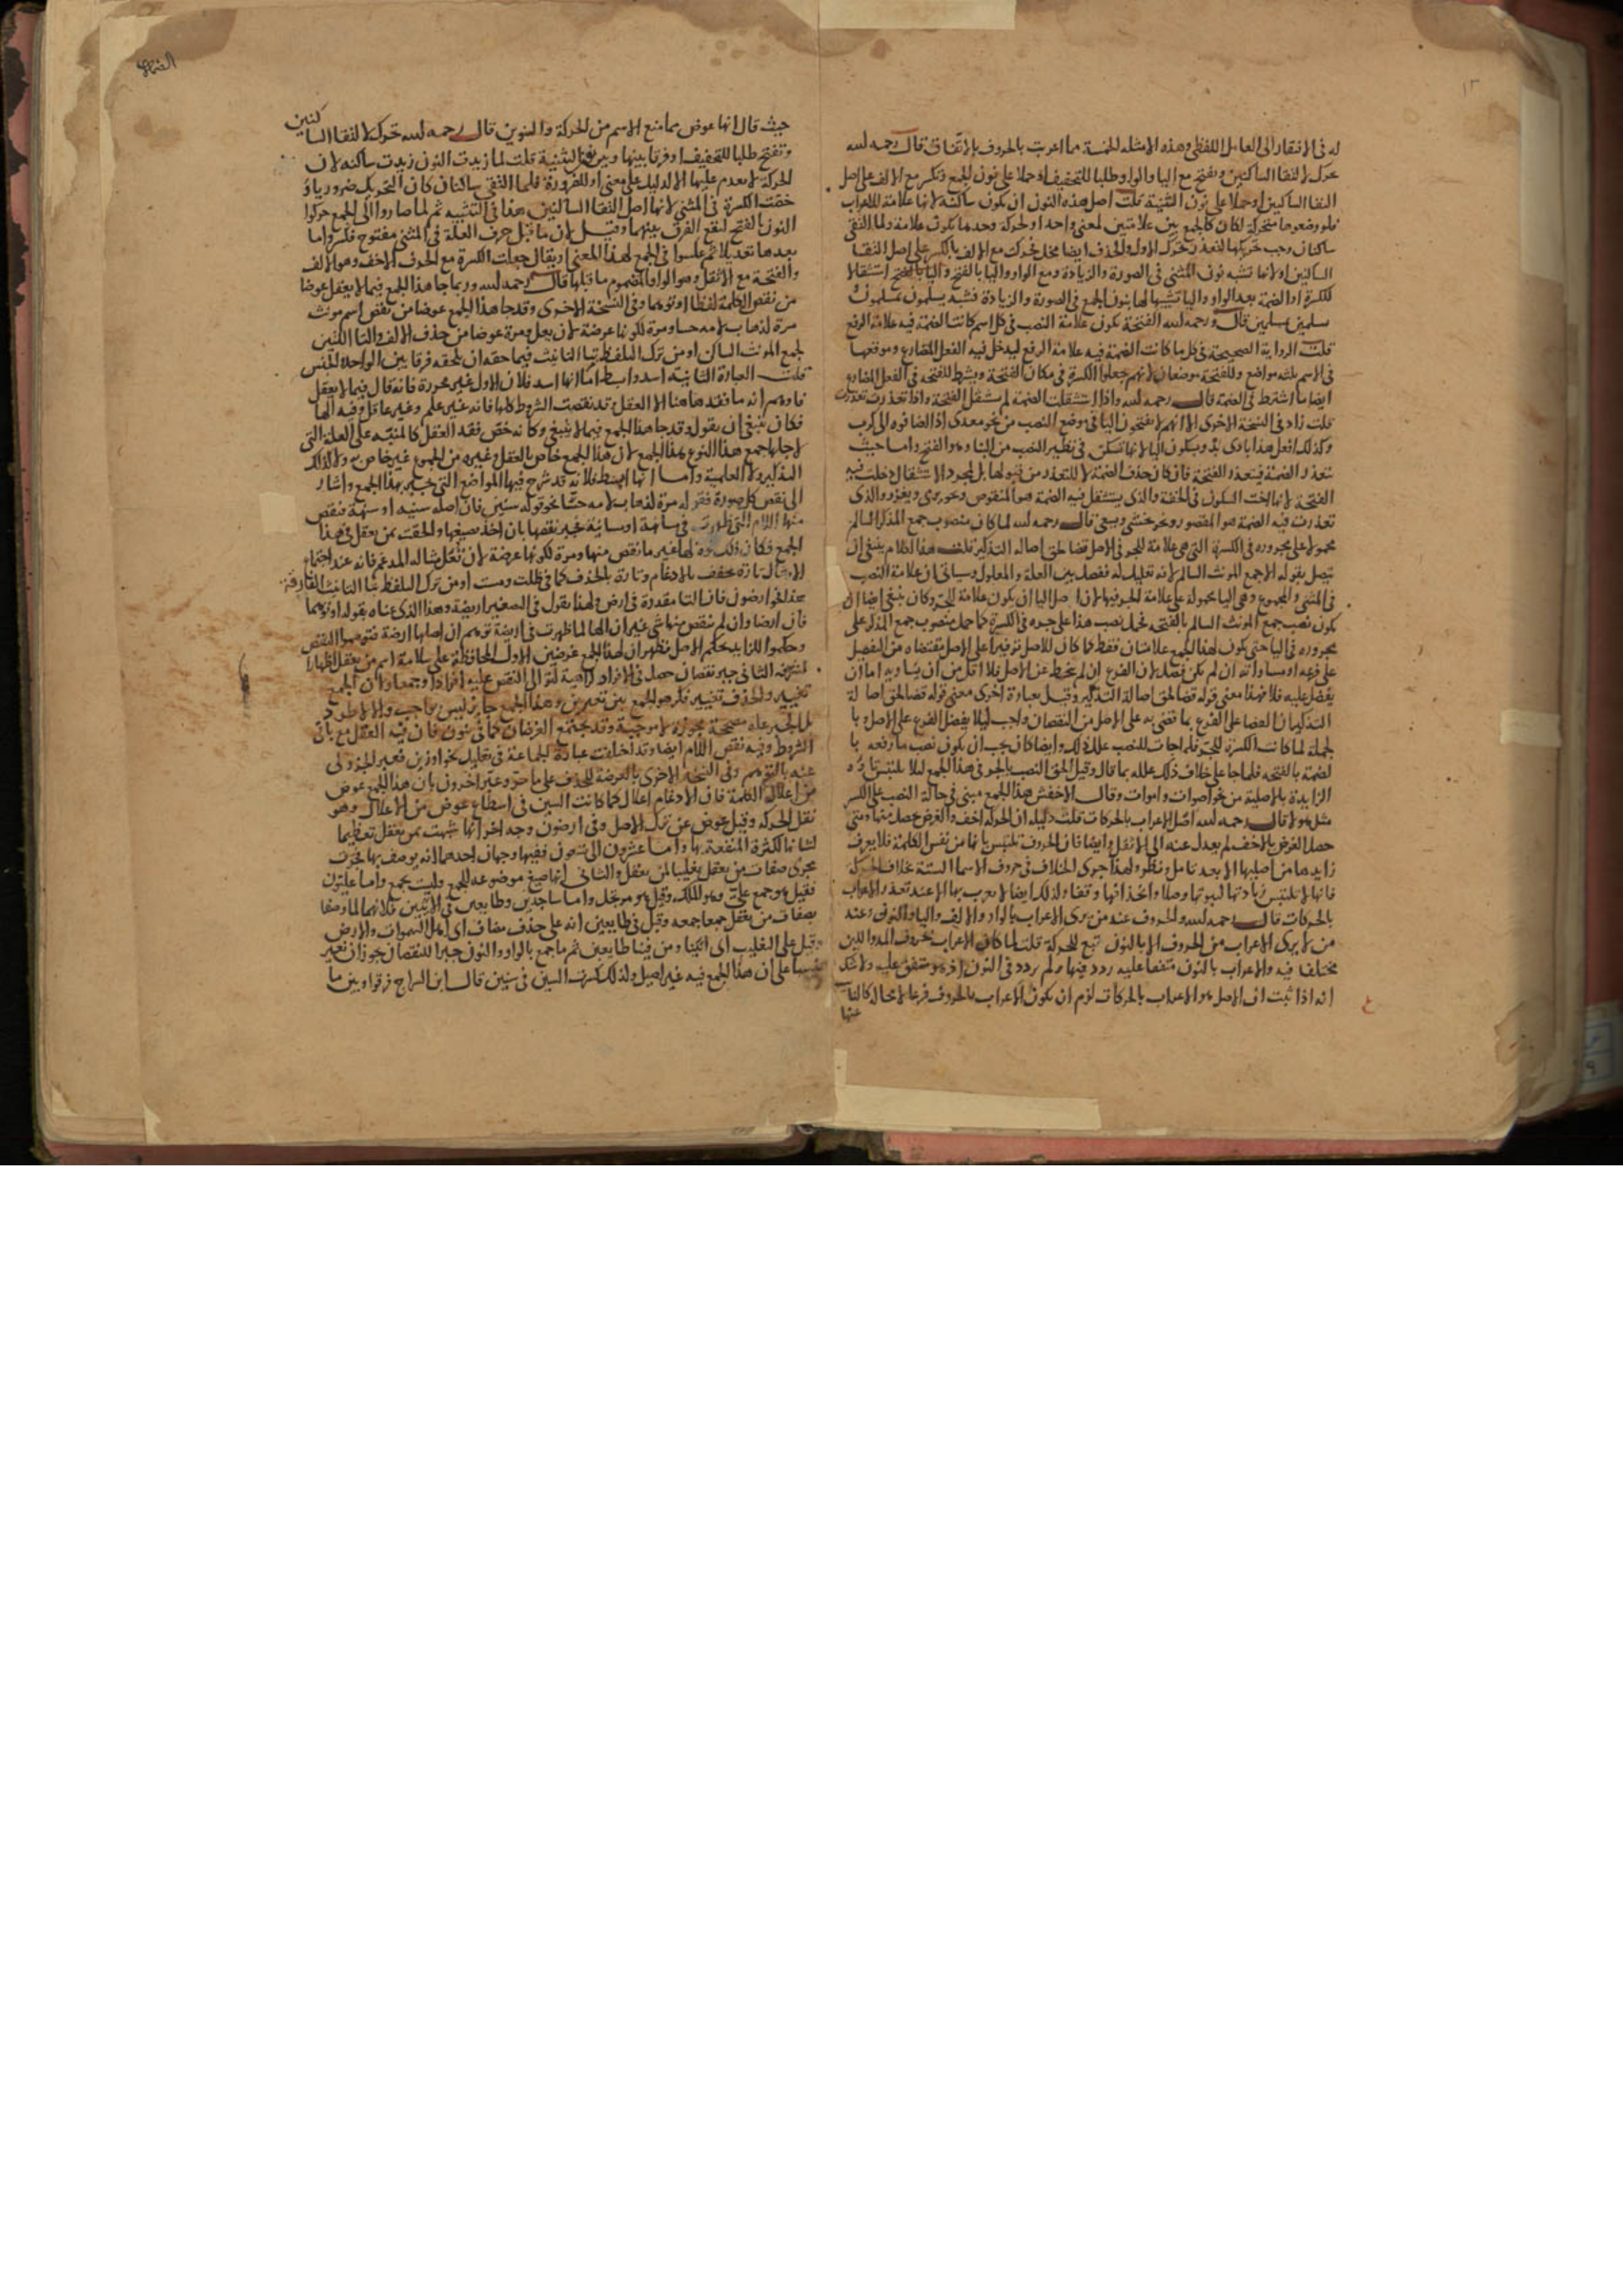 ١٣
له فى الافتقار الى العامل اللفظى وهذه الامثلة الخمسة مما اعرب بالحروف بالاتفاق قال رحمه الله
تحرك لالتقا الساكنين وتفتح مع اليا والواو طلبا للتخفيف او حملا على نون الجمع وتكسر مع الالف على اصل
التقا الساكنين او حملا على نون التثنية قلت اصل هذه النون ان تكون ساكنة لانها علامة للاعراب
فلو وضعوها متحركة لكان كالجمع بين علامتين لمعنى واحد اذ الحركة وحدها تكون علامة ولما التقى
ساكنان وجب تحريكها لتعذر تحرك الاول والحذف ايضا مخل فحركت مع الالف بالكسر على اصل التقا
الساكنين اولانها تشبه نون المثنى فى الصورة والزيادة ومع الواو واليا بالفتح استثقالا
للكسرة او الضمة بعد الواو واليا تشبيها لها بنون الجمع فى الصورة والزيادة فشبه يسلمون بمسلمون
مسلمين قال رحمه الله الفتحة تكون علامة النصب فى كل اسم كانت الضمة فيه علامة الرفع
قلت الرواية الصحيحة فى كل ما كانت الضمة فيه علامة الرفع ليدخل فيه الفعل المضارع وموقعها
فى الاسم ثلثه مواضع وللفتحة موضعان لانهم جعلوا الكسرة فى مكان الفتحة ويشترط للفتحة فى الفعل المضارع
ايضا ما اشترط فى الضمة قال رحمه الله واذا استثقلت الضمة لم تستثقل الفتحة واذا تعذرت تعذرت
قلت زاد فى النسخة الاخرى الا انهم لا يفتحون اليا فى موضع النصب من نحو معدى اذا اضافوه الى كرب
وكذلك افعل هذا بادى بدو بسكون اليا لانها تسكن فى نظير النصب من البنا وهو الفتح واما حيث
تتعذر الضمة فيتعذر الفتحة فان كان حذف الضمة لا للتعذر من قبولها بل لمجرد الاستثقال دخلت فيه
الفتحة لانها اخت السكون فى الخفة والذى يستثقل فيه الضمة هو المنقوص ونحو يرمى ويغزو والذى
تعذرت فيه الضمة هو المقصور ونحو يخشى ويسعى قال رحمه الله لما كان منصوب جمع المذكر السالم
محمولا على مجروره فى الكسرة التى هى علامة للجر فى الاصل قضا لحق اصالة التذكير قلت هذا الكلام ينبغى ان
يتصل بقوله الا جمع المونث السالم لانه تعليل له ففصل بين العلة والمعلول وسياتى ان علامة النصب
فى المثنى والمجموع وهى اليا محمولة على علامة الجر فيها لان اصل اليا ان يكون علامة للجر وكان ينبغى ايضا ان
يكون نصب جمع المونث السالم بالفتحة فحمل نصب هذا على جره فى الكسرة كما حمل منصوب جمع المذكر على
مجروره فى اليا حتى يكون لهذا الجمع علامتان فقط كما كان للاصل توفيرا على الاصل مقتضاه من التفضيل
على فرعه او مساواته ان لم يكن فضله لان الفرع ان لم ينحط عن الاصل فلا اقل من ان يساويه اما ان
يفضل عليه فلا فهذا معنى قوله قضا لحق اصالة التذكير وقيل بعبارة اخرى معنى قوله قضا لحق اصالة
التذكير ان القضا على الفرع بما قضى به على الاصل من النقصان واجب ليلا يفضل الفرع على الاصل وبا
لجملة لما كانت الكسرة للجر فلما جات للنصب علل ذلك وايضا كان يجب ان يكون نصب ما رفعه با
لضمة بالفتحة فلما جا على خلاف ذلك علله بما قال وقيل الحق النصب بالجر فى هذا الجمع ليلا يلتبس تاؤه
الزايدة بالاصلية من نحو اصوات واموات وقال الاخفش هذا الجمع مبنى فى حالة النصب على الكسر
مثل هولا قال رحمه الله اصل الاعراب بالحركات قلت دليله ان الحركة اخف والغرض حصل منها ومتى
حصل الغرض بالاخف لم يعدل عنه الى الاثقل وايضا فان الحروف تلتبس بانها من نفس الكلمة فلا يعرف
زايدها من اصليها الا بعد تامل ونظر ولهذا جرى الخلاف فى حروف الاسما الستة بخلاف الحركة
فانها لا تلتبس زيادتها لثبوتها وصلا وانحذافها وقفا ولذلك ايضا لا يعرب بها الا عند تعذر الاعراب
بالحركات قال رحمه الله والحروف عند من يرى الاعراب بالواو والالف واليا والنون وعند
من لا يرى الاعراب من الحروف الا بالنون تبع للحركة قلت لما كان الاعراب بحروف المد واللين
مختلفا فيه والاعراب بالنون متفقا عليه ردد فيها ولم يردد فى النون اذ هو متفق عليه ولا شك
انه اذا ثبت ان الاصل هو الاعراب بالحركات لزم ان يكون الاعراب بالحروف فرعا لا محالة كالنايب
عنها
حيث قال انها عوض مما منع الاسم من الحركة والتنوين قال رحمه الله تحرك لالتقا الساكنين
وتفتح طلبا للتخفيف او فرقا بينها وبين نون التثنية قلت لما زيدت النون زيدت ساكنة لان
الحركة لا يقدم عليها الا لدليل على معنى او للضرورة فلما التقى ساكنان كان التحريك ضروريا و
خصت الكسرة فى المثنى لانها اصل التقا الساكنين هذا فى التثنية ثم لما صاروا الى الجمع حركوا
النون بالفتح ليقع الفرق بينهما وقيل لان ما قبل حرف العلة فى المثنى مفتوح فكسروا ما
بعدها تعديلا ثم عكسوا فى الجمع لهذا المعنى او يقال جعلت الكسرة مع الحرف الاخف وهو الالف
والفتحة مع الاثقل وهو الواو المضموم ما قبلها قال رحمه الله وربما جا هذا الجمع فيما لا يعقل عوضا
من نقص الكلمة لفظا او توهما وفى النسخة الاخرى وقد جا هذا الجمع عوضا من نقص اسم مونث
مرة لذهاب لامه حسا ومرة لكونها عرضة لان يعل ومرة عوضا من حذف الالف والتا اللتين
لجمع المونث السالم او من ترك التلفظ بتا التانيث فيما حقه ان تلحقه فرقا بين الواحد والجنس
قلت العبارة الثانية اسد وابسط اما انها اسد فلان الاول غير محررة فانه قال فيما لا يعقل
فاوهم انه ما فقد هاهنا الا العقل وقد نقصت الشروط كلها فانه غير علم وغير عاقل وفيه الها
فكان ينبغى ان يقول وقد جا هذا الجمع فيما لا ينبغى وكانه خص فقد العقل كالمنبه على العلة التى
لاجلها جمع هذا النوع بهذا الجمع لان هذا الجمع خاص بالعقل وغيره من الجموع غير خاص به ولا كذلك
التذكير ولا العلمية واما انها ابسط فلانه قد شرح فيها المواضع التى جبر بهذا الجمع واشار
الى نقص كل صورة فقوله مرة لذهاب لامه حسا نحو قوله سنين فان اصله سنية او سنهة فنقص
منها اللام التى ظهرت فى سانهة او سانية فجبر نقصها بان اخذ صيغها والحقت بمن يعقل فى هذا
الجمع فكان ذلك لها غير ما نقص منها ومرة لكونها عرضة لان تعل مثاله المدغم فانه عند اجتماع
الامثال تارة يخفف بالادغام وتارة بالحذف كما فى ظلت ومست او من ترك التلفظ بتا التانيث الفارقة
هذا نحو ارضون فان التا مقدرة فى ارض ولهذا نقول فى التصغير اريضة وهذا الذى عناه بقوله او توهما
فان ارضا وان لم ينقص منها شى غير ان الها لما ظهرت فى اريضة توهم ان اصلها ارضة فتوهموا النقص
وحكموا للزايد بحكم الاصل فظهر ان لهذا الجمع غرضين الاول المحافظة على سلامة اسم من يعقل اظهارا
لشرفه الثانى جبر نقصان حصل فى الافراد كراهية توالى النقص عليه افرادا وجمعا لان الجمع
تغيير والحذف تغيير فكرهوا الجمع بين تغييرين وهذا الجمع جايز ليس بواجب ولا لاطرد
بل الجبر علة مصححة مجوزة لا موجبة وقد يجتمع الغرضان كما فى بنون فان فيه العقل مع باقى
الشروط وفيه نقص اللام ايضا وقد اختلفت عبارة الجماعة فى تعليل نحو اوزين فعبر الجزولى
عنه بالتوهم وفى النسخة الاخرى بالعرضة للحذف على ما مر وعبر اخرون بان هذا الجمع عوض
من اعلال الكلمة فان الادغام اعلال كما كانت السين فى اسطاع عوض من الاعلال وهو
نقل الحركة وقيل عوض عن ترك الاصل وفى ارضون وجه اخر انها شبهت بمن يعقل تعظيما
لشانها لكثرة المنفعة بها واما عشرون الى تسعون ففيها وجهان احدهما انه يوصف بها فجرت
مجرى صفات من يعقل تغليبا لمن يعقل والثانى انها صيغ موضوعه للجمع وليست بجمع واما عليون
فقيل هو جمع على وهو الملك وقيل هو مرتجل واما ساجدين وطايعين فى الايتين فلانهما لما وصفا
بصفات من يعقل جمعا جمعه وقيل فى طايعين انه على حذف مضاف اى اهل السموات والارض
وقيل على التغليب اى اتينا ومن فينا طايعين ثم ما جمع بالواو والنون جبرا للنقصان يجوز ان تغير
تنبيها على ان هذا الجمع فيه غير اصيل ولذلك كسرت السين فى سنين قال ابن السراج فرقوا بين ما